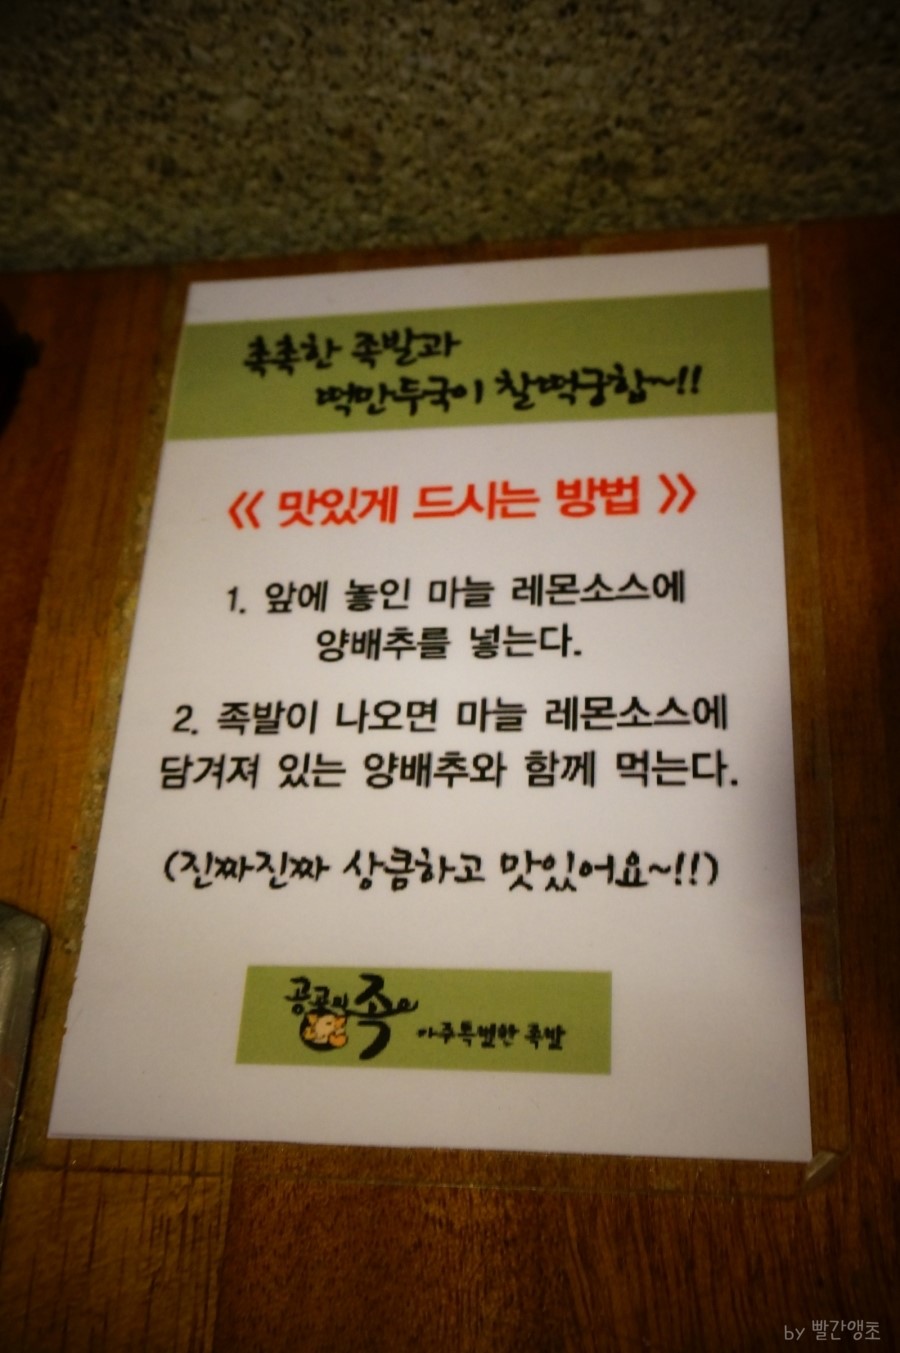 촉촉한 족발과
떡만두국이 찰떡궁합~!!
<< 맛있게 드시는 방법 >>
1. 앞에 놓인 마늘 레몬소스에
양배추를 넣는다.
2. 족발이 나오면 마늘 레몬소스에
담겨져 있는 양배추와 함께 먹는다.
(진짜진짜 상큼하고 맛있어요~!!)
족
아주특별한 족발
by 빨간앵초